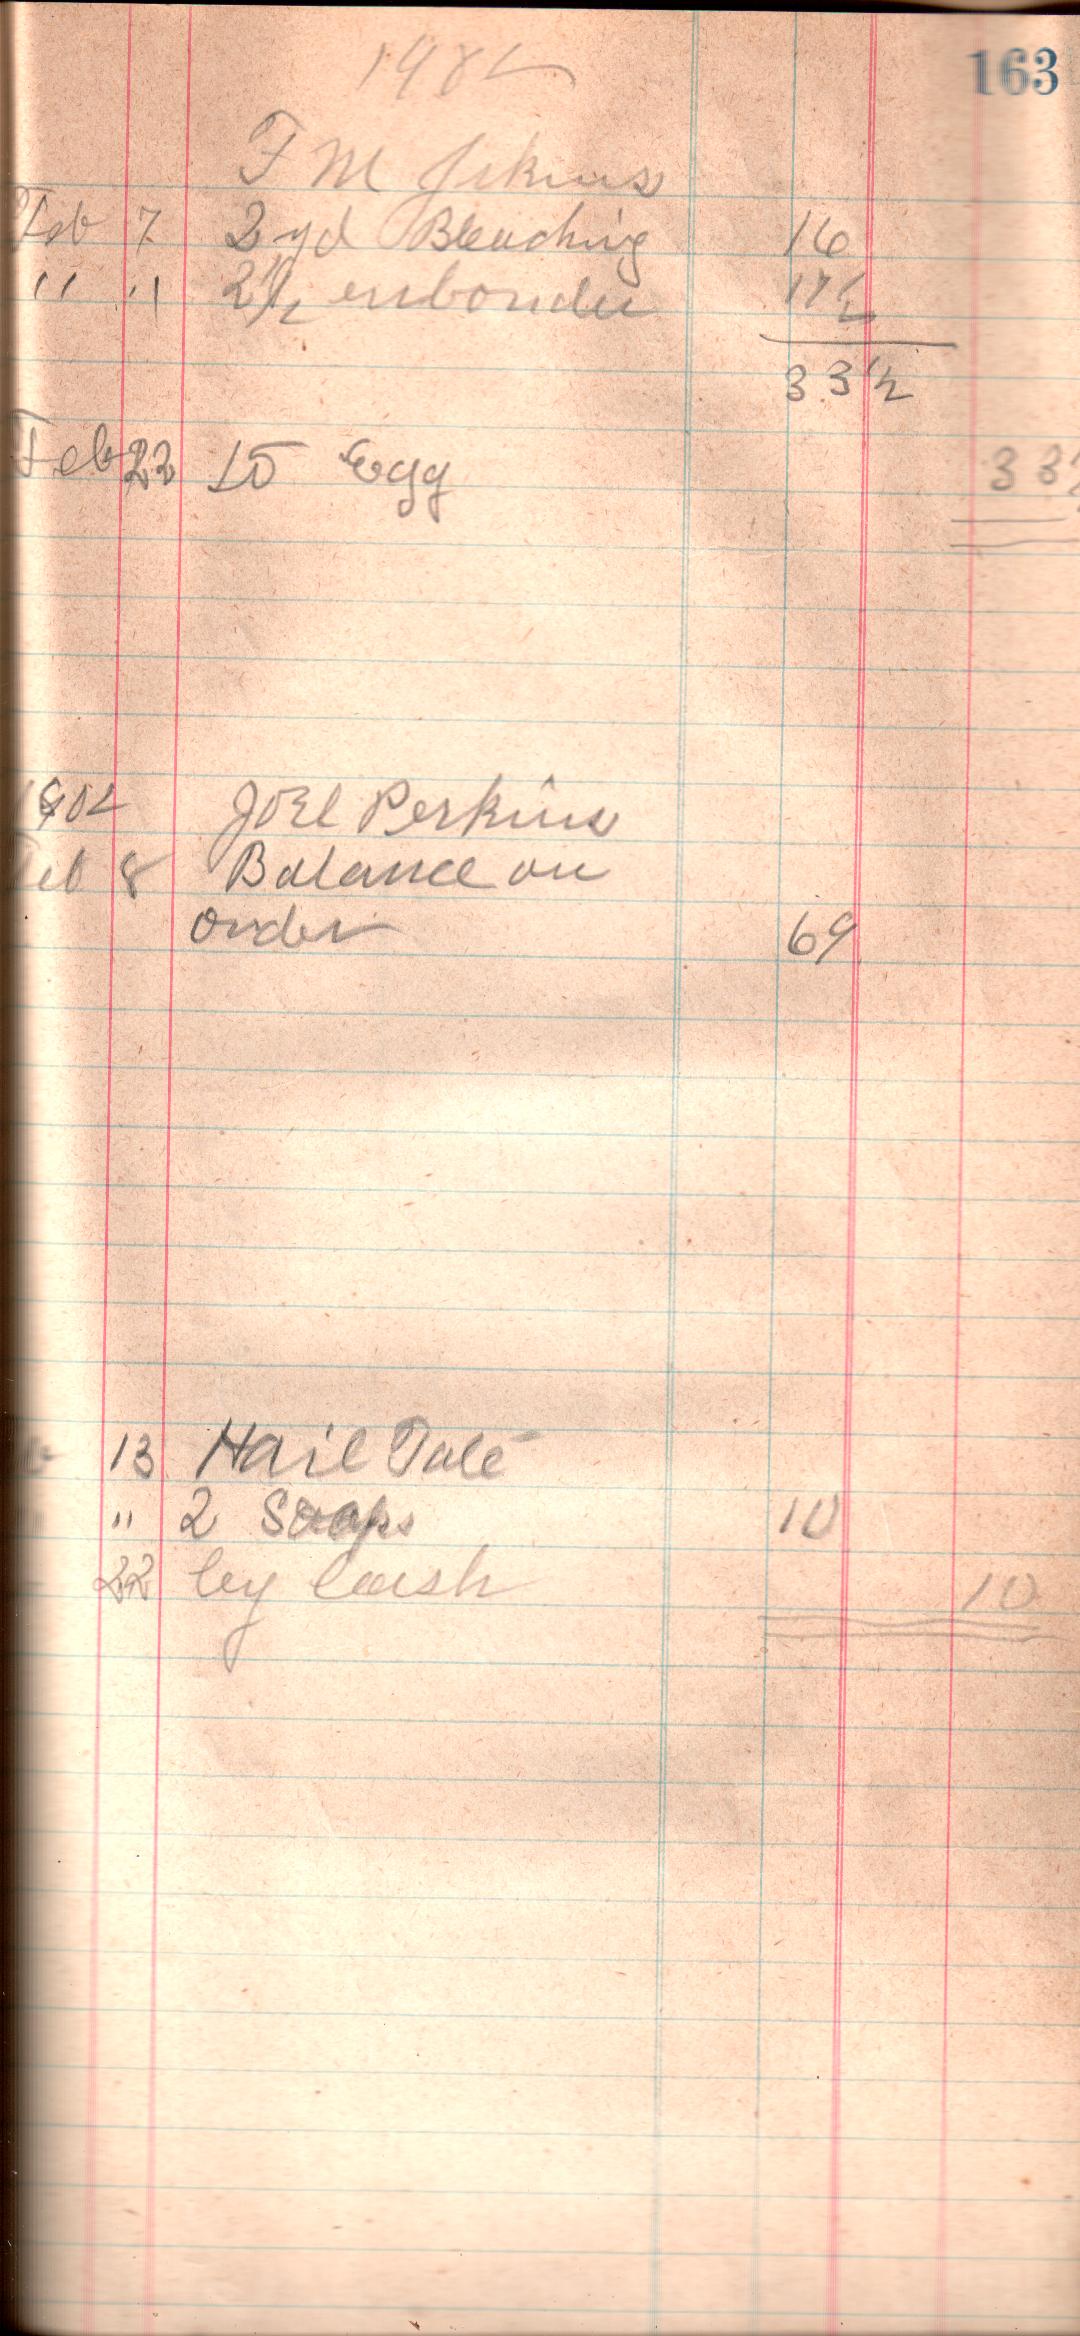 163
190
F M Jekins
Feb 7 2 yd Bleaching 16
" " 2 1/2 enborder 17 1/2
33 1/2
Feb 22 15 Egg 33
1902 Joel Perkins
Feb 8 Balance on
order 69
13 Hail Tate
" 2 Soaps 10
22 by Cash 10